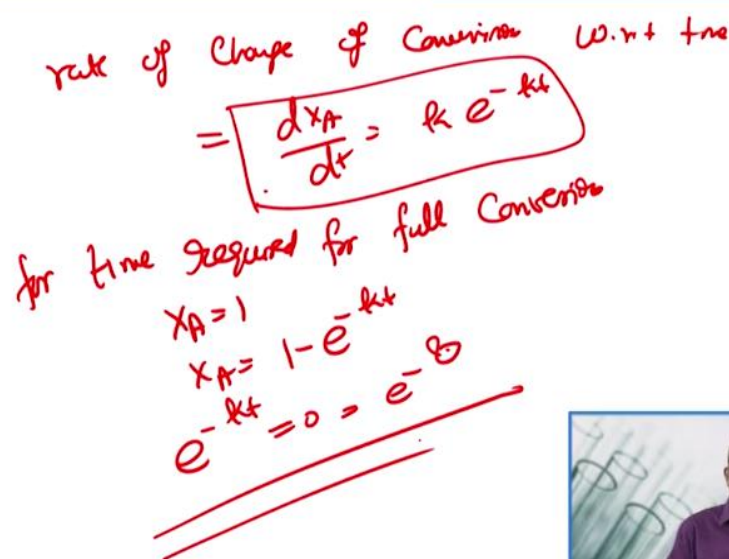 rate of Change of Conversion w.r.t time
= dxA/dt = k e^-kt
for time required for full Conversion
xA = 1
xA = 1 - e^-kt
e^-kt = 0 = e^-∞